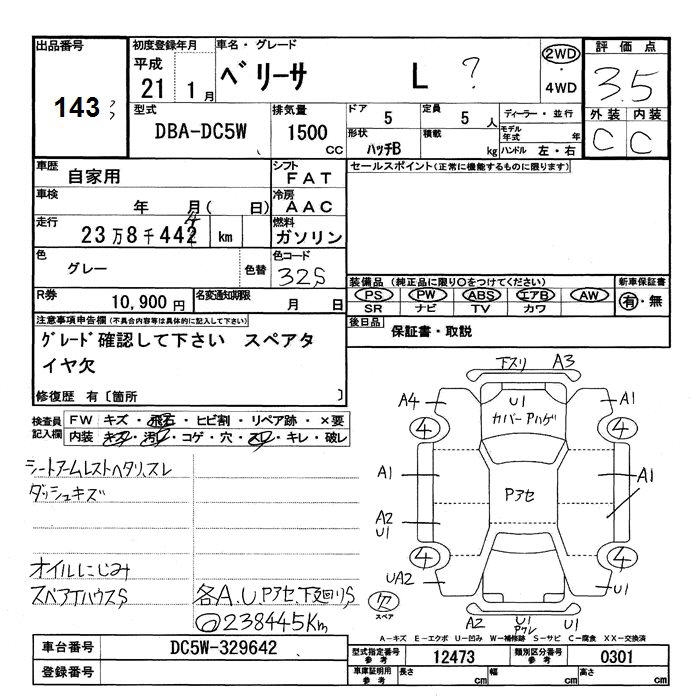 出品番号 初度登録年月 車名・グレード 評価点
143 平成 21 1月 ベリーサ L ? 2WD・4WD 3.5
型式 排気量 ドア 定員 ディーラー・並行 外装 内装
DBA-DC5W 1500 CC 5 5人 C C
形状 ハッチB 積載 kg モデル年式 年 ハンドル 左・右
車歴 自家用 シフト FAT セールスポイント(正常に機能するものに限ります)
車検 年 月( 日) 冷房 AAC
走行 23万8千442 km 燃料 ガソリン
色 グレー 色替 色コード 32S
装備品 (純正品に限り○をつけてください) 新車保証書
PS PW ABS エアB AW 有・無
SR ナビ TV カワ
R券 10,900円 名変通知期限 月 日
後日品 保証書・取説
注意事項申告欄(不具合内容等は具体的に記入して下さい)
グレード確認して下さい スペアタ
イヤ欠
修復歴 有〔箇所 〕
検査員記入欄 FW キズ・飛石・ヒビ割・リペア跡・×要
内装 キズ・汚レ・コゲ・穴・スレ・キレ・破レ
シートアームレストヘタリ、スレ
ダッシュキズ
オイルにじみ
スペアTハウスS 各A.U.Pアセ、下廻りS
238445Km
下スリ A3
A4 U1 A1
カバーPハゲ
4 4
A1 A1
Pアセ
A2
U1
4 4
UA2 U1
欠 スペア
A2 U1 U1
Pワレ
A-キズ E-エクボ U-凹み W-補修跡 S-サビ C-腐食 XX-交換済
車台番号 DC5W-329642 型式指定番号 参考 12473 類別区分番号 参考 0301
登録番号 車庫証明用 参考 長さ cm 幅 cm 高さ cm